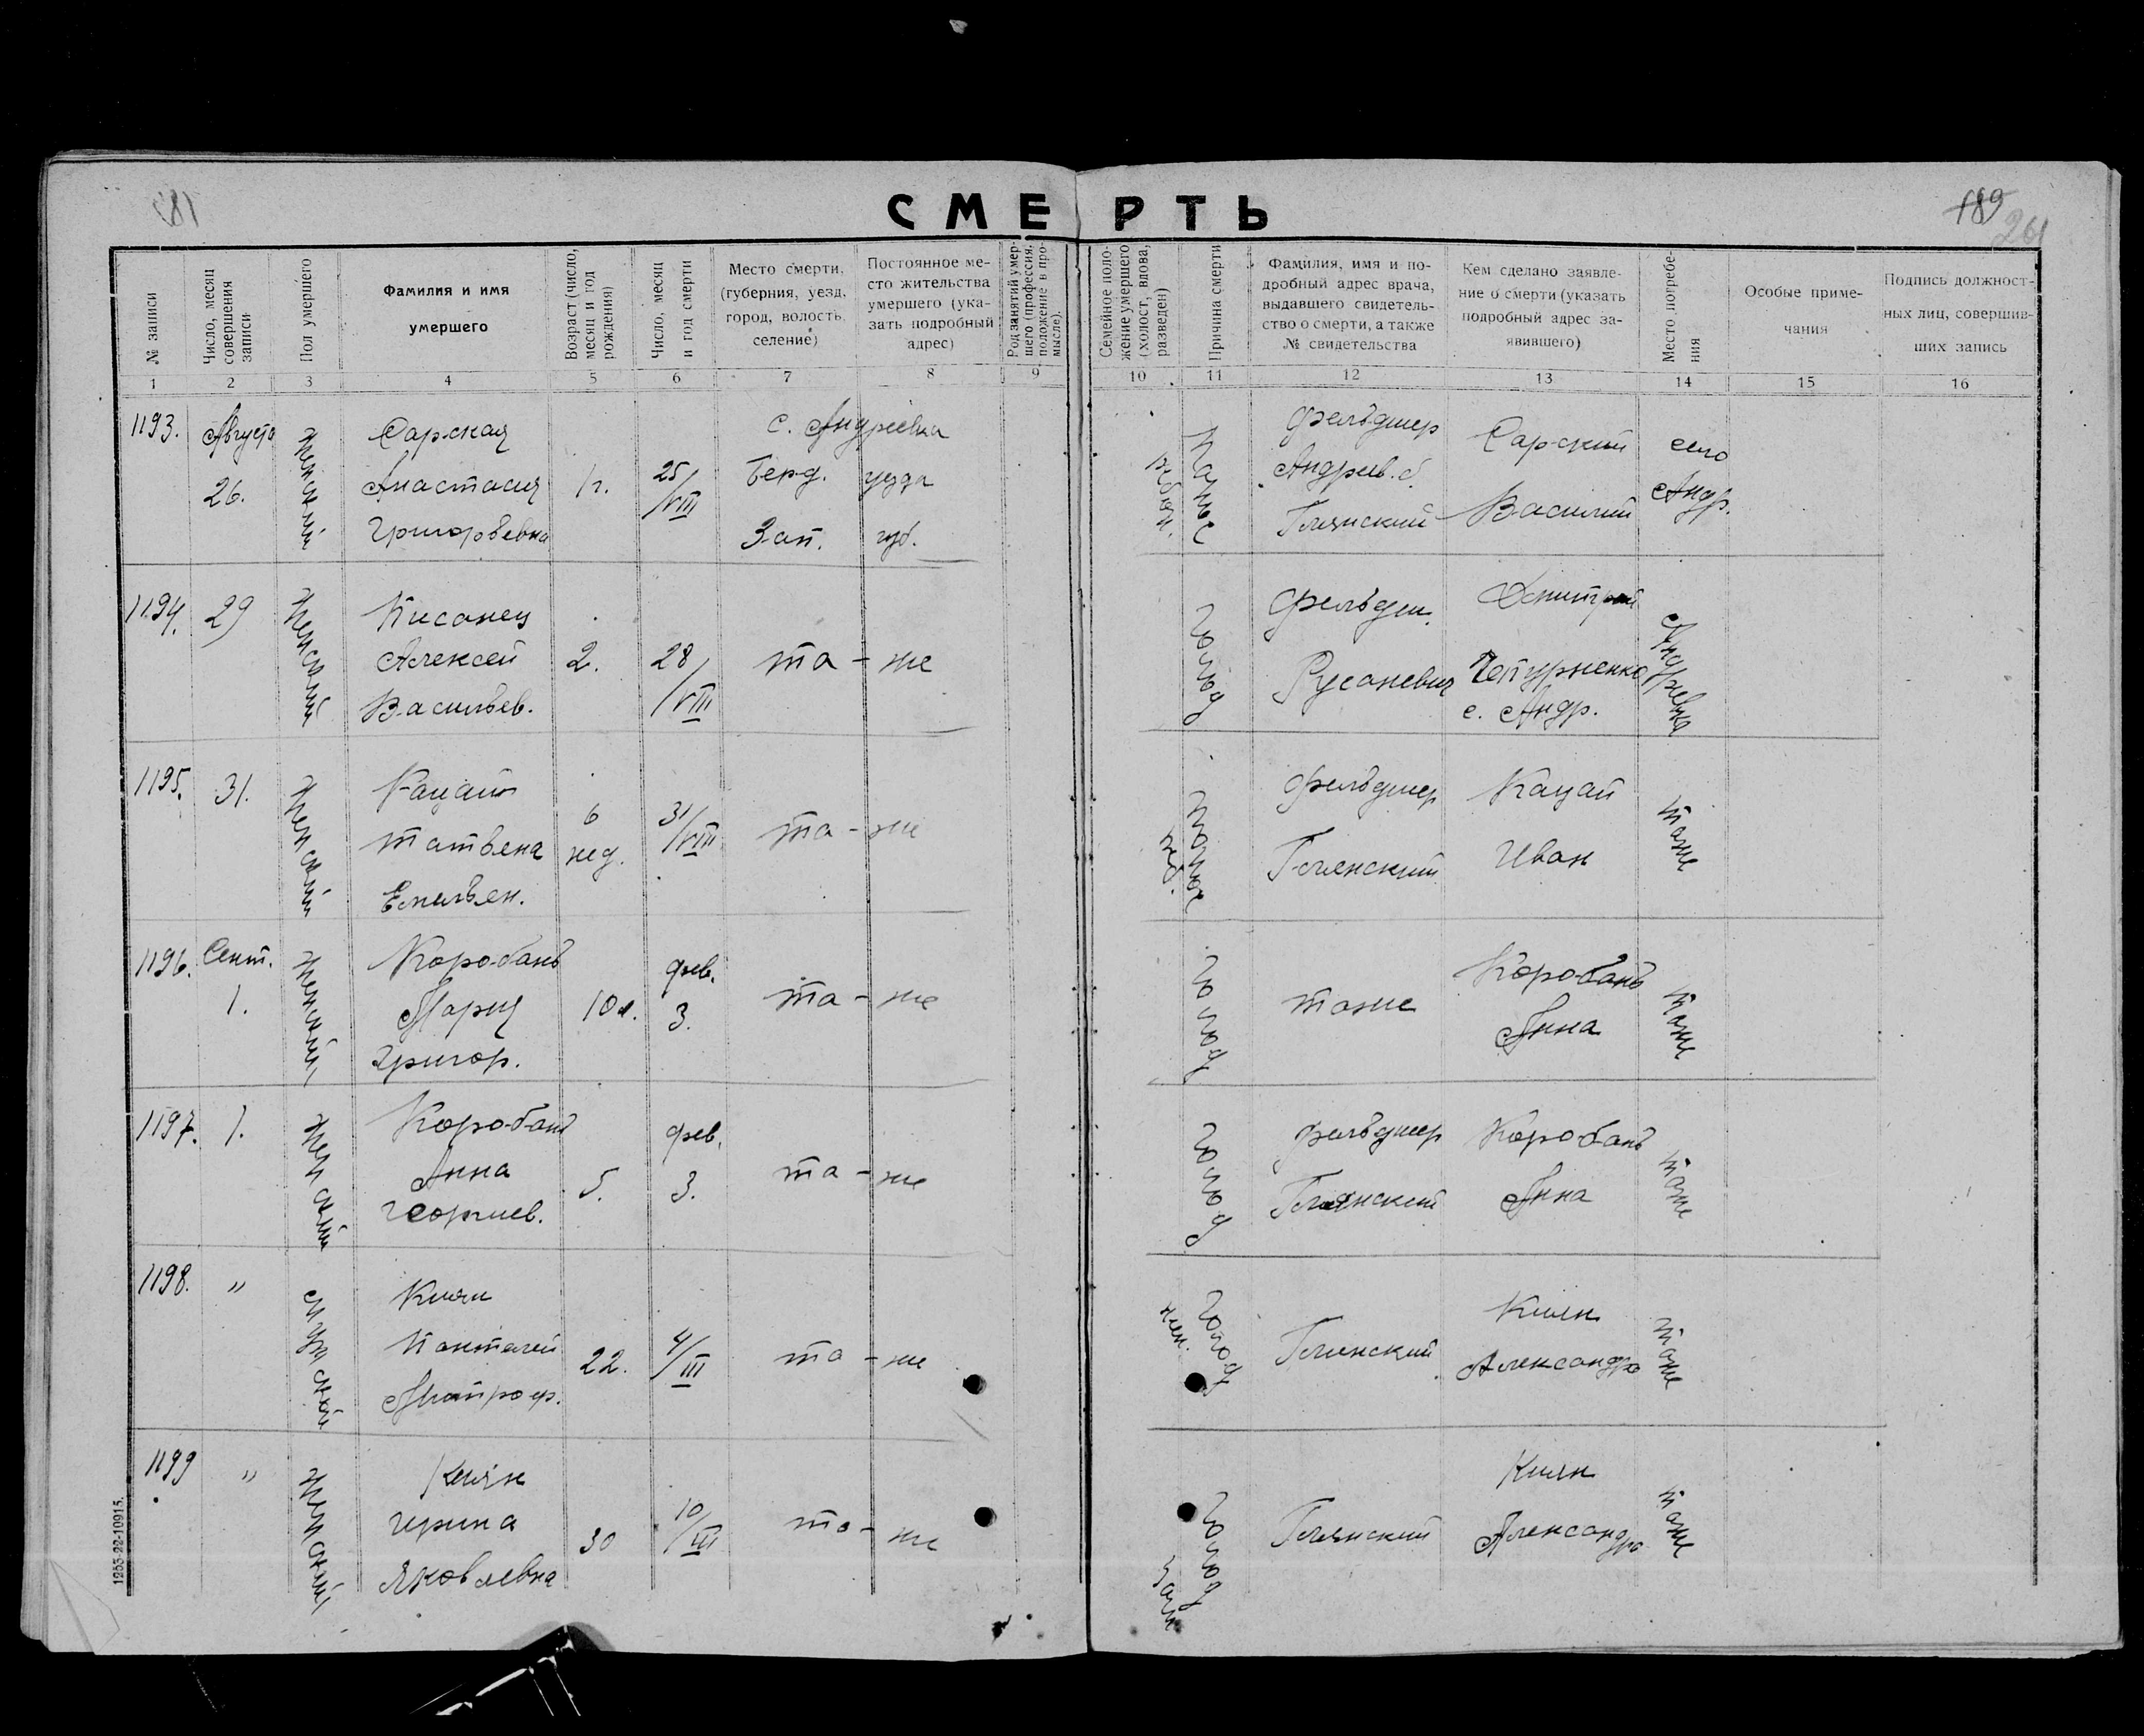 181
СМЕРТЬ
189
261
№ записи
Число, месяц совершения записи
Пол умершего
Фамилия и имя умершего
Возраст (число, месяц и год рождения)
Число, месяц и год смерти
Место смерти, (губерния, уезд, город, волость селение)
Постоянное место жительства умершего (указать подробный адрес)
Род занятий умершего (профессия, положение в промысле).
Семейное положение умершего (холост, вдова, разведен)
Причина смерти
Фамилия, имя и подробный адрес врача, выдавшего свидетельство о смерти, а также № свидетельства
Кем сделано заявление о смерти (указать подробный адрес заявившего)
Место погребения
Особые примечания
Подпись должностных лиц, совершивших запись
1 2 3 4 5 6 7 8 9 10 11 12 13 14 15 16
1193. Августа 26. женский
Сарская
Анастасия
Григорьевна
1 г. 25/VIII
с. Андреевка
Берд. уезда
Зап. губ.
фельдшер
Андреев. б.
Глянский
Сарский
Василий
село
Андр.
1194. 29 женский
Писанец
Алексей
Васильев.
2. 28/VIII
та - же
голод
фельдш.
Русаневич
Дмитрий
Чепурненко
с. Андр.
Андреевка
1195. 31. женский
Кацай
Татьяна
Емельян.
6 нед. 31/VIII
та - же
фельдшер
Глянский
Кацай
Иван
тоже
1196. Сент. 1. женский
Коробань
Мария
Григор.
10 л. фев. 3.
та - же
голод
тоже
Коробань
Анна
тоже
1197. 1. женский
Коробань
Анна
Георгиев.
5. фев. 3.
та - же
голод
фельдшер
Глянский
Коробань
Анна
тоже
1198. " мужской
Киян
Пантелей
Митроф.
22. 4/III
та - же
жен.
голод
Глянский
Киян
Александра
тоже
1199 " женский
Киян
Ирина
Яковлевна
30 10/III
та - же
голод
Глянский
Киян
Александра
тоже
1255-22-10915.